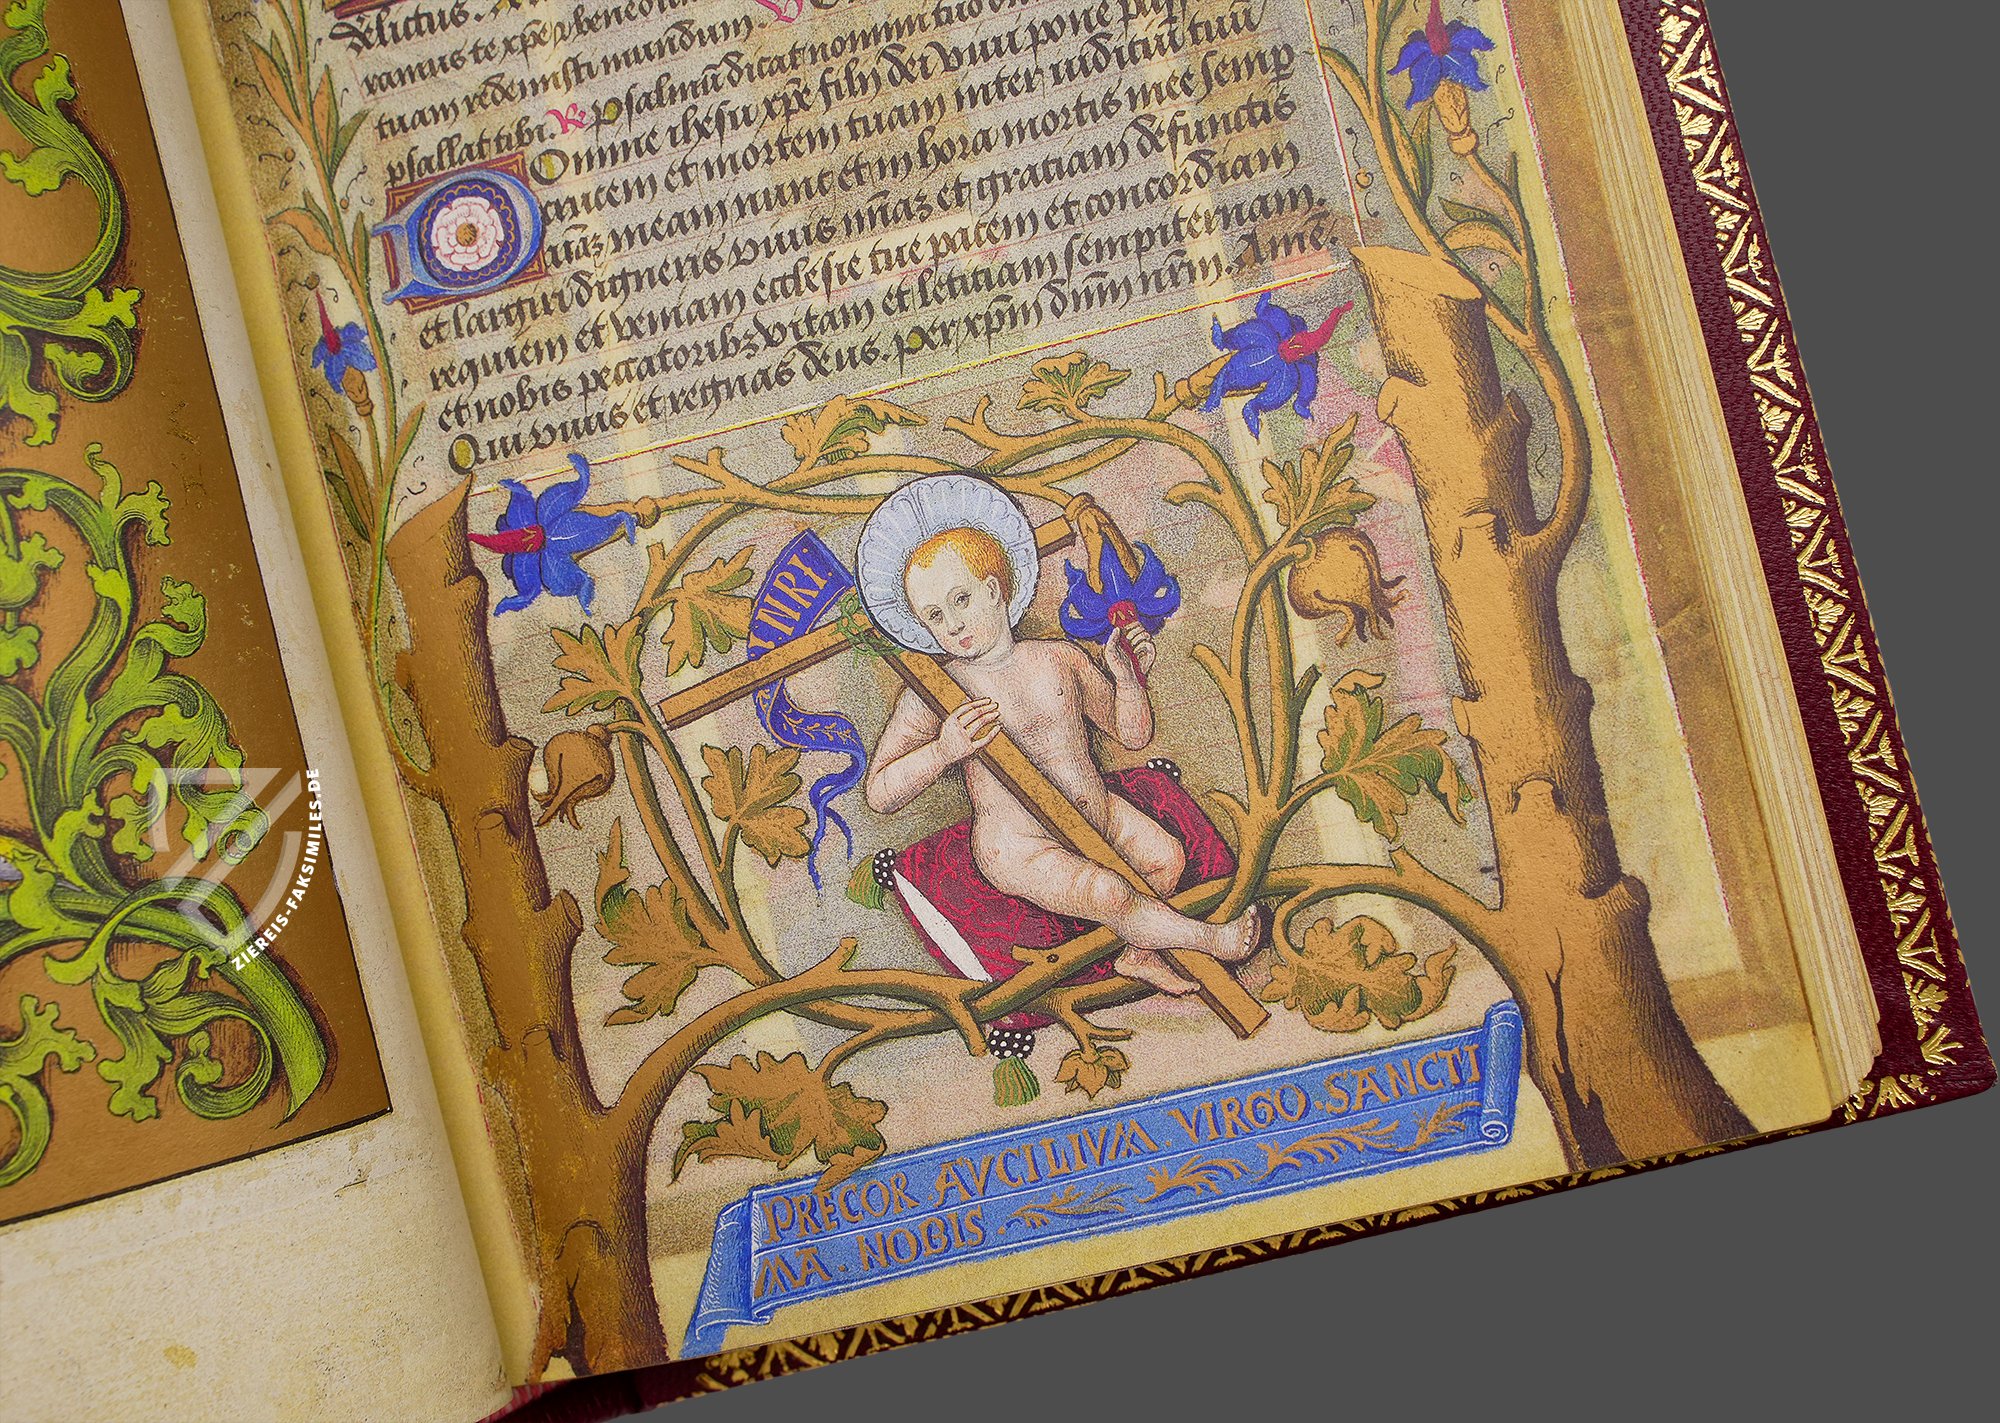 delictus.
ramus te xpe et benedici
tuam redemisti mundum. V
psallat tibi. R psalmū dicat nomini tuo
Domine ihesu xpe filij dei viui pone
crucem et mortem tuam inter iudicium tuū
aīaz meam nunc et in hora mortis mee semp
et largiri digneris viuis mīaz et gratiam defunctis
requiem et veniam ecclesie tue pacem et concordiam
et nobis peccatoribz vitam et letitiam sempiternam.
Qui viuis et regnas deus. per xpm dnm nrm. Amē.
·INRI·
PRECOR · AVCILIVM · VIRGO · SANCTI
MA · NOBIS ·
ZIEREIS-FAKSIMILES.DE